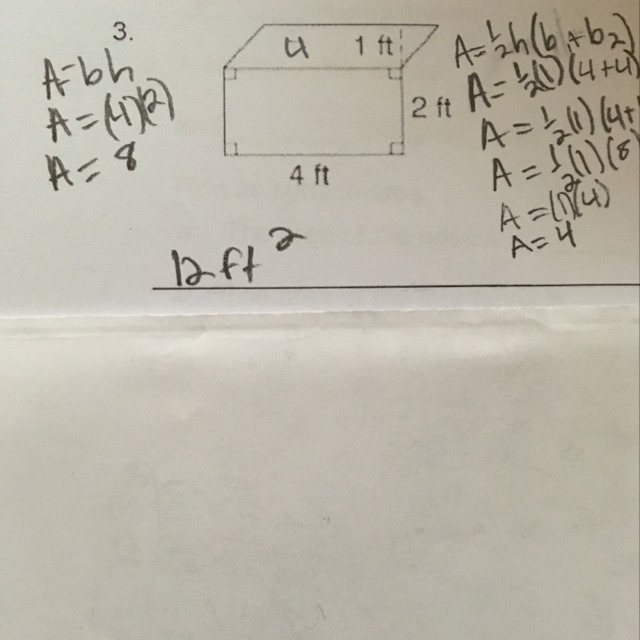 3.
A=bh
A=(4)(2)
A=8
4
1 ft
2 ft
4 ft
A=½h(b1+b2)
A=½(1)(4+4)
A=½(1)(4+
A=½(1)(8
A=(1)(4)
A=4
12 ft²